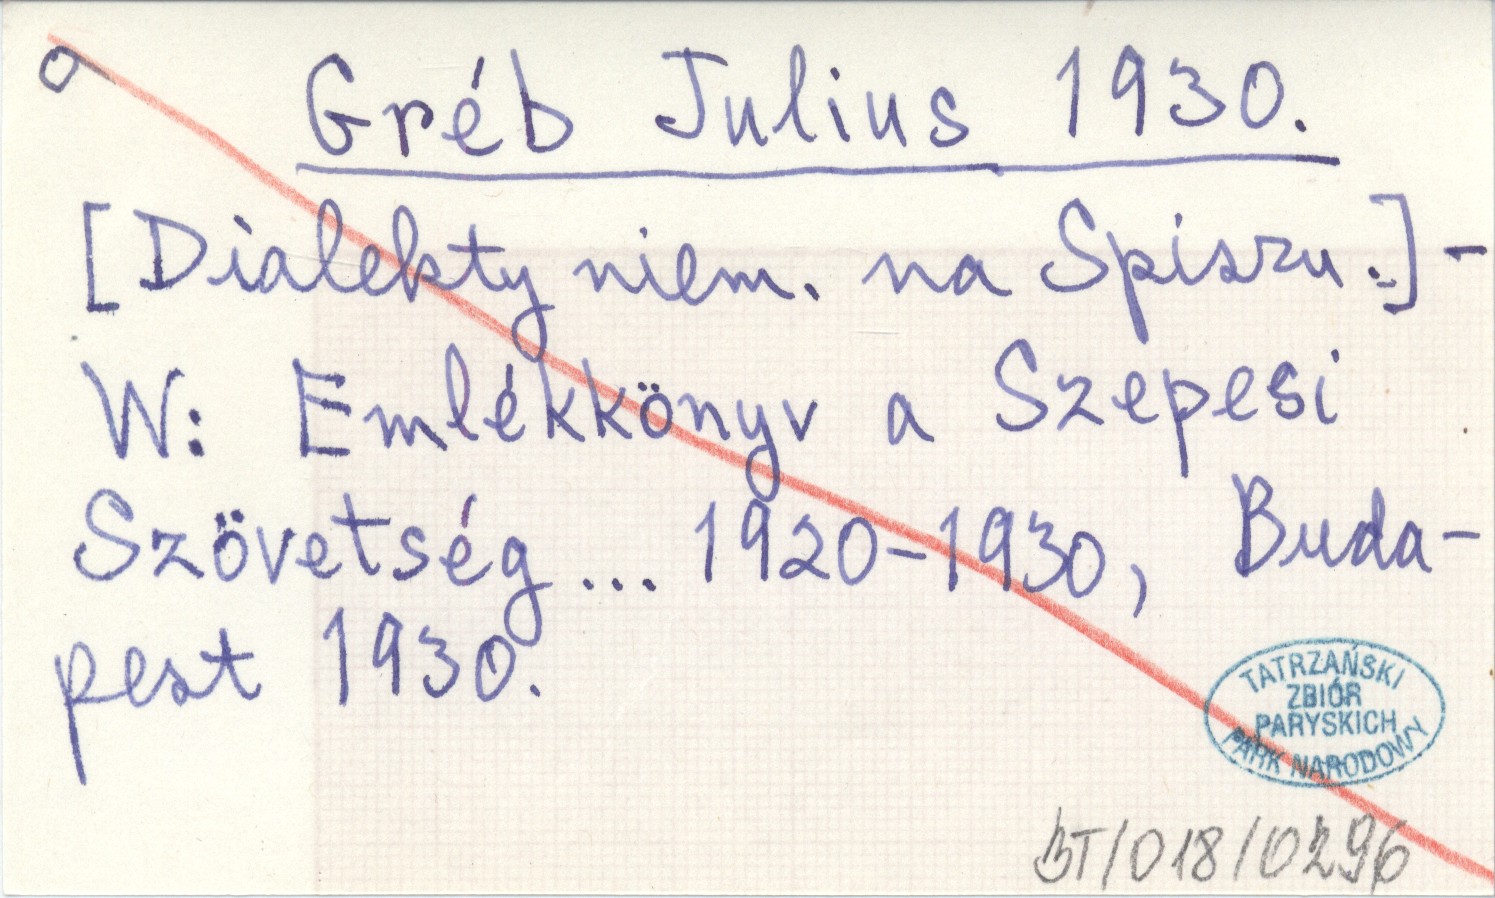 Gréb Julius 1930.
[Dialekty niem. na Spiszu.] -
W: Emlékkönyv a Szepesi
Szövetség... 1920-1930, Buda-
pest 1930.
TATRZAŃSKI
ZBIÓR
PARYSKICH
PARK NARODOWY
BT/018/0296